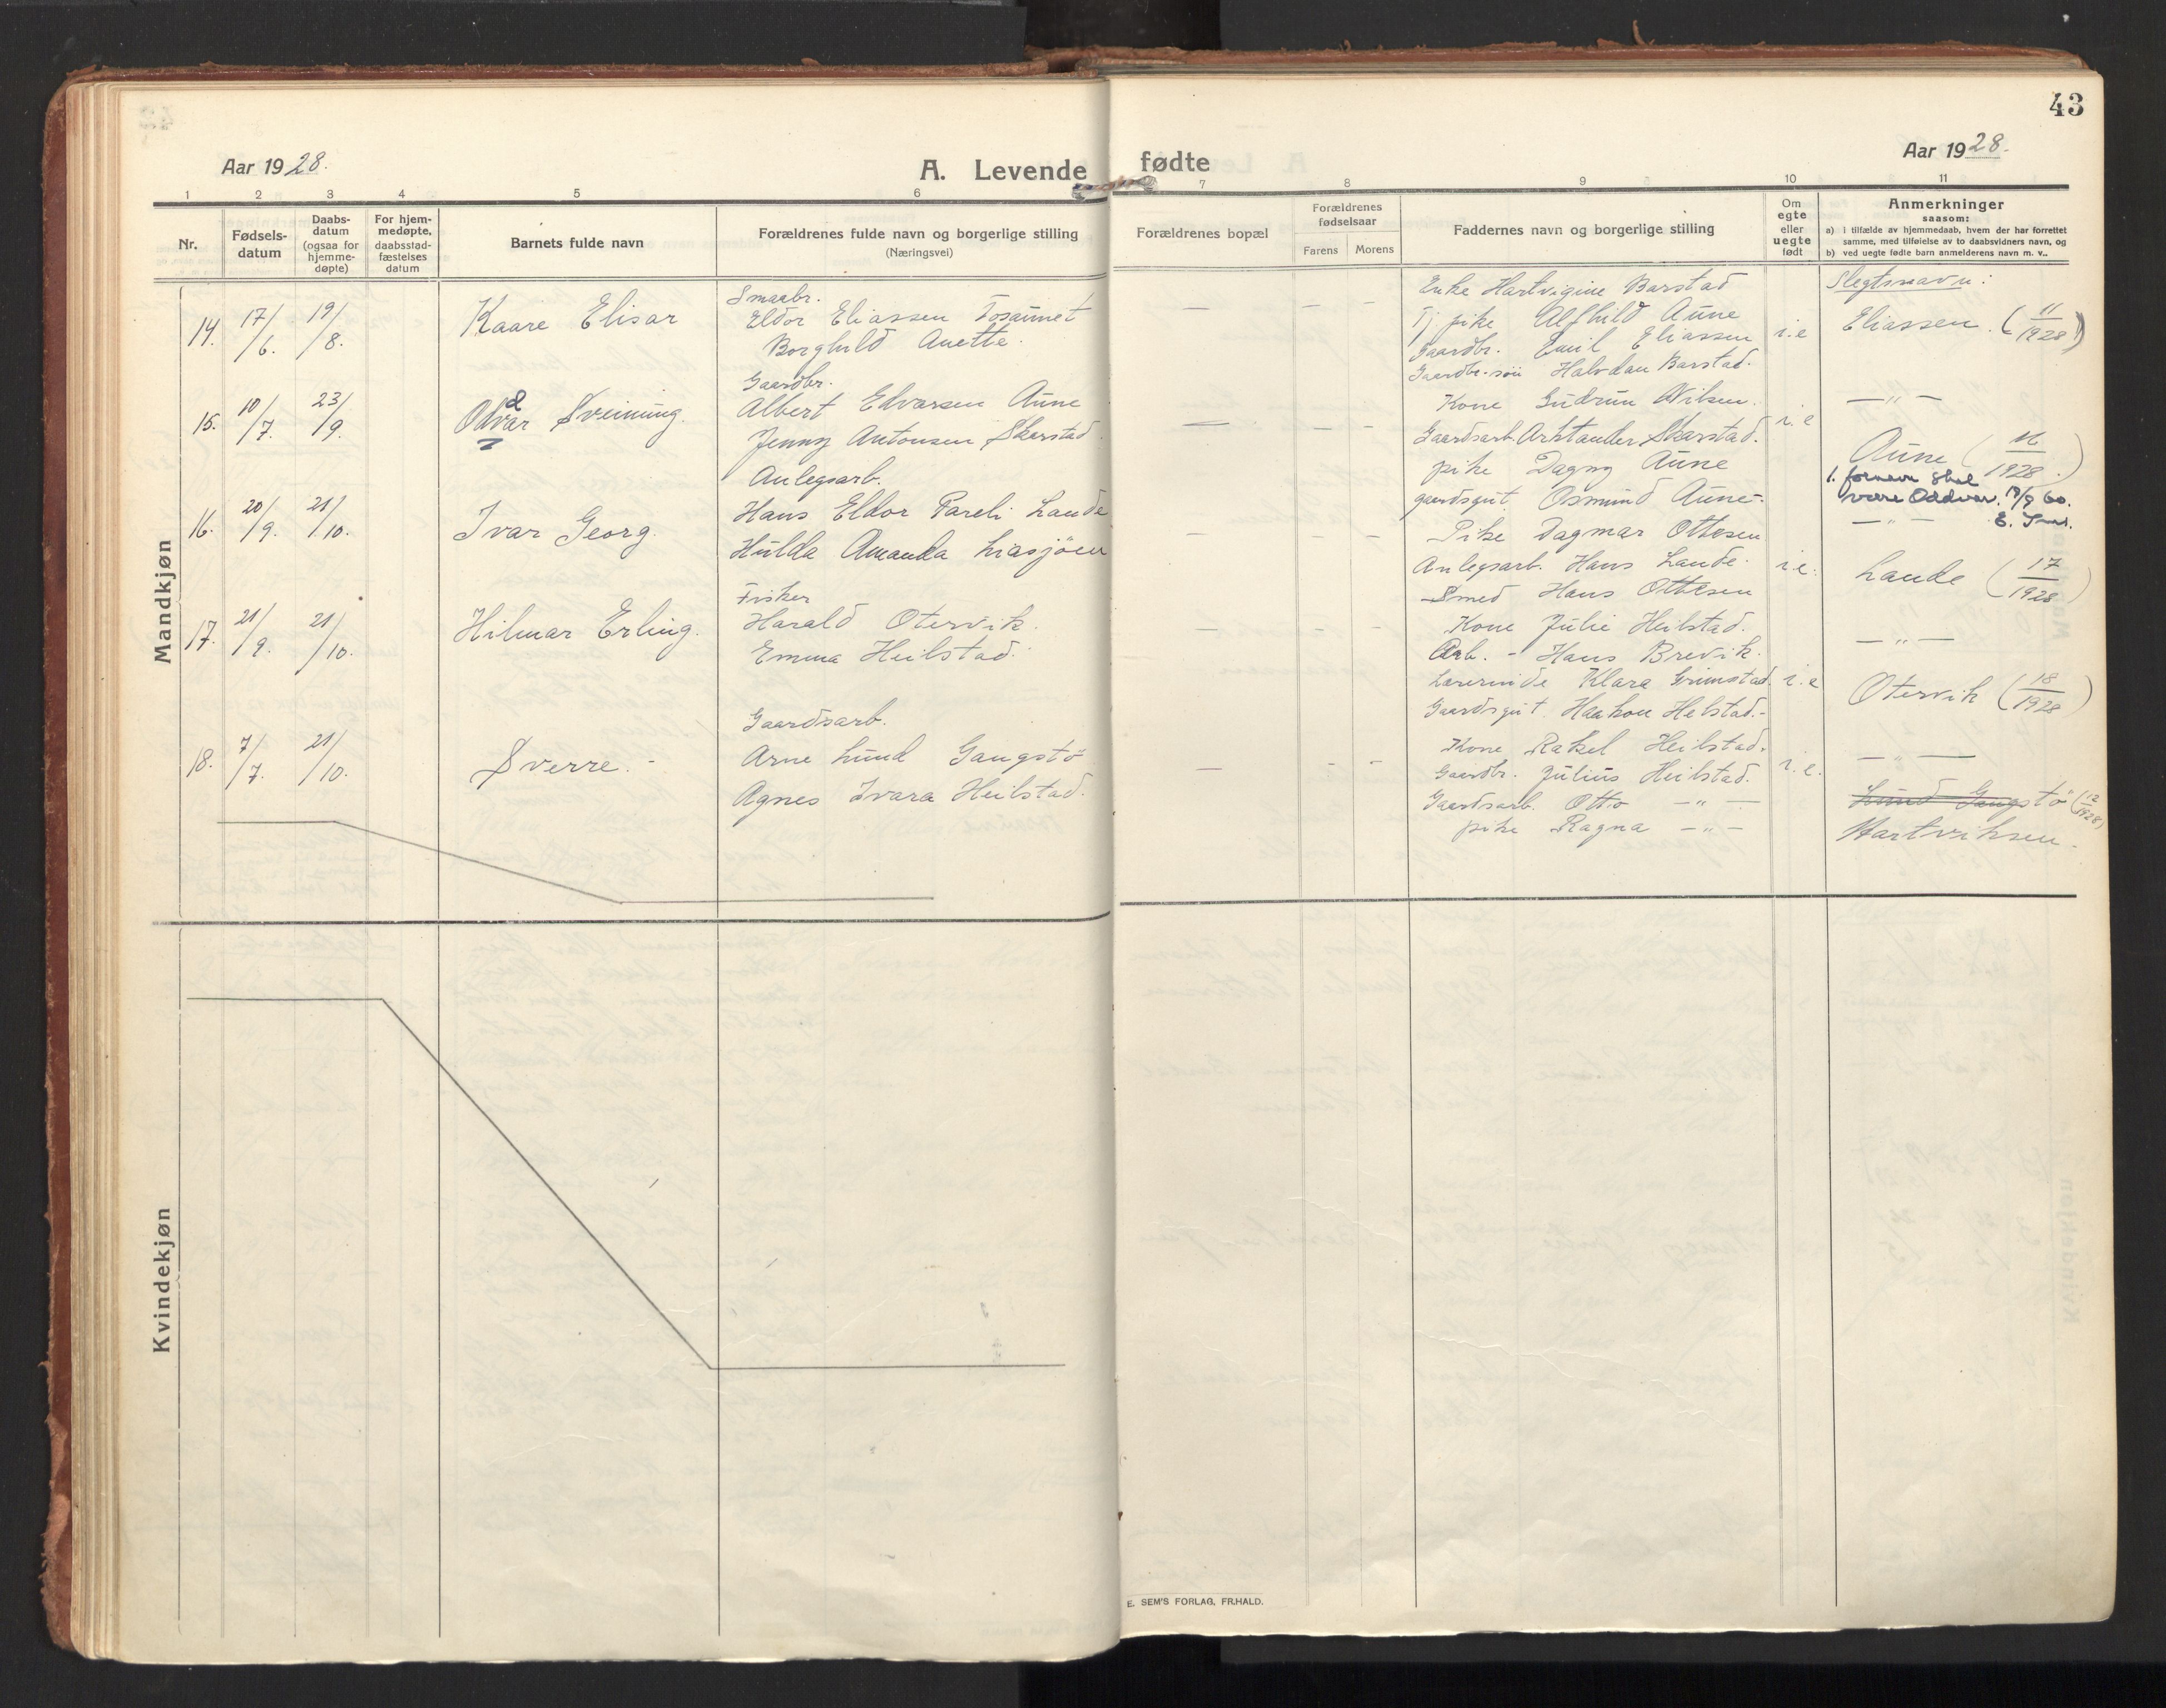 43
Aar 1928.
A. Levende fødte
Aar 1928.
1 2 3 4 5 6 7 8 9 10 11
Nr.
Fødsels-
datum
Daabs-
datum
(ogsaa for
hjemme-
døpte)
For hjem-
medøpte,
daabsstad-
fæstelses
datum
Barnets fulde navn
Forældrenes fulde navn og borgerlige stilling
(Næringsvei)
Forældrenes bopæl
Forældrenes
fødselsaar
Farens Morens
Faddernes navn og borgerlige stilling
Om
egte
eller
uegte
født
Anmerkninger
saasom:
a) i tilfælde av hjemmedaab, hvem der har forrettet
samme, med tilføielse av to daabsvidners navn, og
b) ved uegte fødte barn anmelderens navn m. v..
Mandkjøn
14. 17/6. 19/8.
Kaare Elisar
Smaabr.
Eldor Eliassen Tosaunet
Borghild Anette.
— – –
Enke Hartvigine Barstad
Tj pike Alfhild Aune
Gaardbr. Emil Eliassen
Gaardbr.-søn Halvdan Barstad.
i.e
Slegtsnavn:
Eliassen. (11/1928)
15. 10/7. 23/9.
Odvar Sveinung.
d
Gaardbr.
Albert Edvarsen Aune
Jenny Antonsen Skarstad.
— – –
Kone Gudrun Nilsen.
Gaardsarb. Arhtander Skarstad.
pike Dagny Aune
gaardsgut. Osmund Aune-.
i.e
— " —
Aune (16/1928.)
1. fornavn skal
være Oddvar. 13/9 60.
16. 20/9. 21/10.
Ivar Georg.
Anlegsarb.
Hans Eldor Pareli Lande
Hulda Amanda Liasjøen
– – –
Pike Dagmar Ottesen
Anlegsarb. Hans Lande.
Smed Hans Ottesen
i.e.
— " —
Lande (17/1928)
17. 21/9. 21/10.
Hilmar Erling.
Fisker
Harald Otervik.
Emma Heilstad.
– – –
Kone Julie Heilstad.
Arb. - Hans Brevik.
Lærerinde Klara Grimstad.
Gaardsgut. Haakon Helstad.-
i.e
— " —
Otervik (18/1928)
18. 7/7. 21/10.
Sverre. -
Gaardsarb.
Arne Lund Gangstö
Agnes Ivara Heilstad.
– – –
Kone Rakel Heilstad.
Gaardbr. Julius Heilstad.
Gaardsarb. Otto — " —
pike Ragna — " —
i.e.
— " —
Lund Gangstö (12/1928)
Hartviksen.
Kvindekjøn
E. SEM'S FORLAG, FR.HALD.